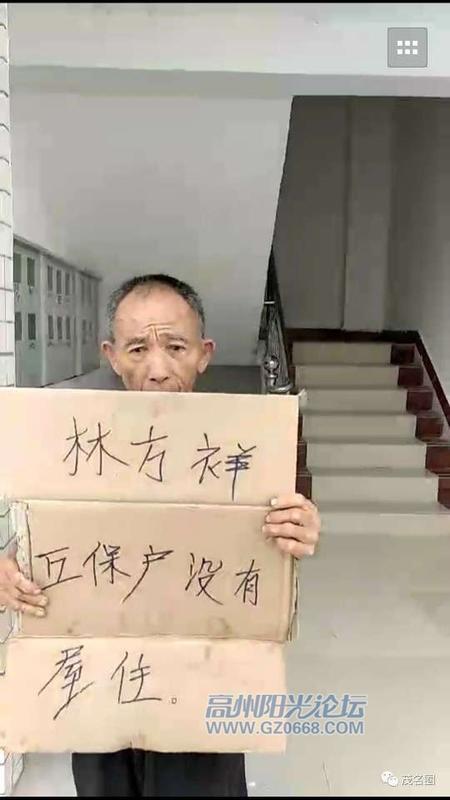 林方祥
五保户没有
屋住。
高州阳光论坛
WWW.GZ0668.COM
茂名圈